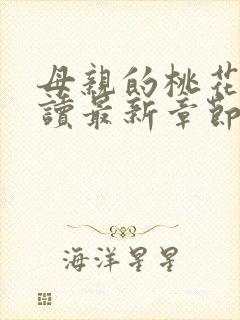 母親的桃花
讀最新章節
海洋星星